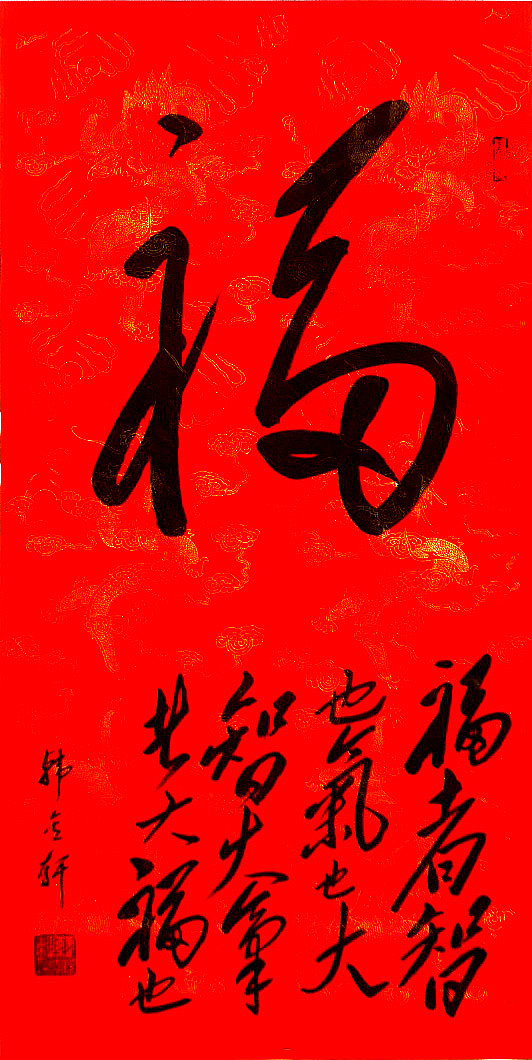 福
福者智
也氣也大
智大氣
者大福也
韩 轩